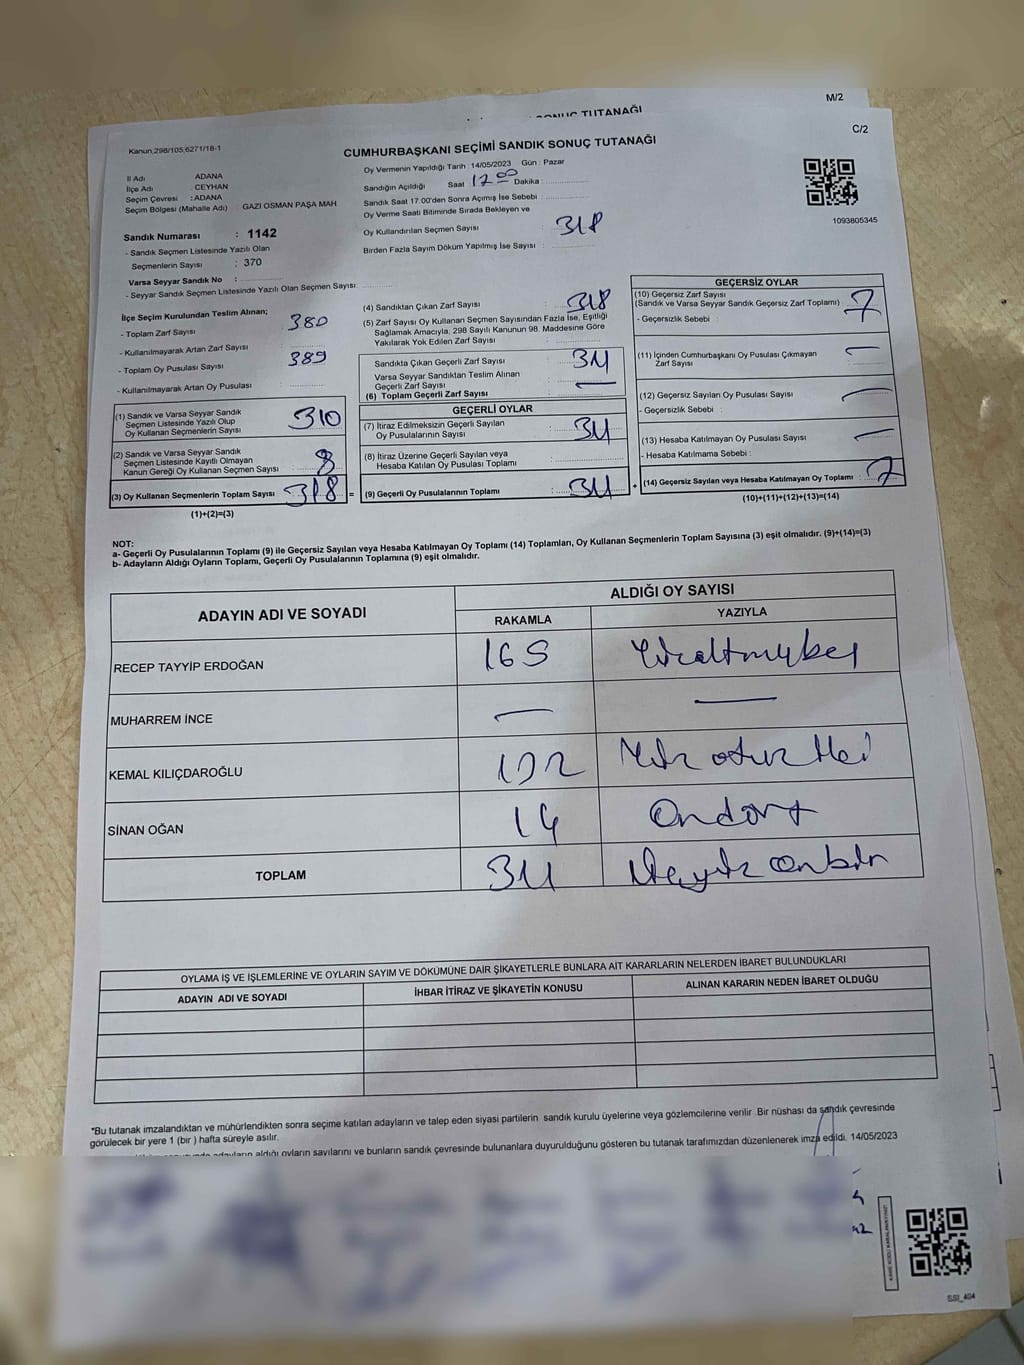 M/2
SONUÇ TUTANAĞI
C/2
Kanun,298/105,6271/18-1
CUMHURBAŞKANI SEÇİMİ SANDIK SONUÇ TUTANAĞI
İl Adı ADANA
İlçe Adı CEYHAN
Seçim Çevresi : ADANA
Seçim Bölgesi (Mahalle Adı) GAZI OSMAN PAŞA MAH
Oy Vermenin Yapıldığı Tarih :14/05/2023 Gün : Pazar
Sandığın Açıldığı Saat 17 00 Dakika :
Sandık Saat 17.00'den Sonra Açımış İse Sebebi :
Oy Verme Saati Bitiminde Sırada Bekleyen ve
Oy Kullandırılan Seçmen Sayısı : 318
Birden Fazla Sayım Döküm Yapılmış İse Sayısı :
1093805345
Sandık Numarası : 1142
- Sandık Seçmen Listesinde Yazılı Olan
Seçmenlerin Sayısı : 370
Varsa Seyyar Sandık No :
- Seyyar Sandık Seçmen Listesinde Yazılı Olan Seçmen Sayısı :
İlçe Seçim Kurulundan Teslim Alınan;
- Toplam Zarf Sayısı 380
- Kullanılmayarak Artan Zarf Sayısı
- Toplam Oy Pusulası Sayısı 389
- Kullanılmayarak Artan Oy Pusulası :
(1) Sandık ve Varsa Seyyar Sandık
Seçmen Listesinde Yazılı Olup
Oy Kullanan Seçmenlerin Sayısı 310
(2) Sandık ve Varsa Seyyar Sandık
Seçmen Listesinde Kayıtlı Olmayan
Kanun Gereği Oy Kullanan Seçmen Sayısı : 8
(3) Oy Kullanan Seçmenlerin Toplam Sayısı 318 =
(1)+(2)=(3)
(4) Sandıktan Çıkan Zarf Sayısı : 318
(5) Zarf Sayısı Oy Kullanan Seçmen Sayısından Fazla İse, Eşitliği
Sağlamak Amacıyla, 298 Sayılı Kanunun 98. Maddesine Göre
Yakılarak Yok Edilen Zarf Sayısı :
Sandıkta Çıkan Geçerli Zarf Sayısı : 311
Varsa Seyyar Sandıktan Teslim Alınan
Geçerli Zarf Sayısı : —
(6) Toplam Geçerli Zarf Sayısı
GEÇERLİ OYLAR
(7) İtiraz Edilmeksizin Geçerli Sayılan
Oy Pusulalarının Sayısı : 311
(8) İtiraz Üzerine Geçerli Sayılan veya
Hesaba Katılan Oy Pusulası Toplamı :
(9) Geçerli Oy Pusulalarının Toplamı : 311 +
GEÇERSİZ OYLAR
(10) Geçersiz Zarf Sayısı
(Sandık ve Varsa Seyyar Sandık Geçersiz Zarf Toplamı) : 7
- Geçersizlik Sebebi :
(11) İçinden Cumhurbaşkanı Oy Pusulası Çıkmayan
Zarf Sayısı : —
(12) Geçersiz Sayılan Oy Pusulası Sayısı : —
- Geçersizlik Sebebi :
(13) Hesaba Katılmayan Oy Pusulası Sayısı : —
- Hesaba Katılmama Sebebi :
(14) Geçersiz Sayılan veya Hesaba Katılmayan Oy Toplamı : 7
(10)+(11)+(12)+(13)=(14)
NOT:
a- Geçerli Oy Pusulalarının Toplamı (9) ile Geçersiz Sayılan veya Hesaba Katılmayan Oy Toplamı (14) Toplamları, Oy Kullanan Seçmenlerin Toplam Sayısına (3) eşit olmalıdır. (9)+(14)=(3)
b- Adayların Aldığı Oyların Toplamı, Geçerli Oy Pusulalarının Toplamına (9) eşit olmalıdır.
ADAYIN ADI VE SOYADI ALDIĞI OY SAYISI
RAKAMLA YAZIYLA
RECEP TAYYİP ERDOĞAN 165 Yüzaltmışbeş
MUHARREM İNCE — —
KEMAL KILIÇDAROĞLU 132 Yüz otuz iki
SİNAN OĞAN 14 Ondört
TOPLAM 311 Üçyüz onbir
OYLAMA İŞ VE İŞLEMLERİNE VE OYLARIN SAYIM VE DÖKÜMÜNE DAİR ŞİKAYETLERLE BUNLARA AİT KARARLARIN NELERDEN İBARET BULUNDUKLARI
ADAYIN ADI VE SOYADI İHBAR İTİRAZ VE ŞİKAYETİN KONUSU ALINAN KARARIN NEDEN İBARET OLDUĞU
*Bu tutanak imzalandıktan ve mühürlendikten sonra seçime katılan adayların ve talep eden siyasi partilerin sandık kurulu üyelerine veya gözlemcilerine verilir. Bir nüshası da sandık çevresinde
görülecek bir yere 1 (bir ) hafta süreyle asılır.
adayların aldığı oyların sayılarını ve bunların sandık çevresinde bulunanlara duyurulduğunu gösteren bu tutanak tarafımızdan düzenlenerek imza edildi. 14/05/2023
SSI_404